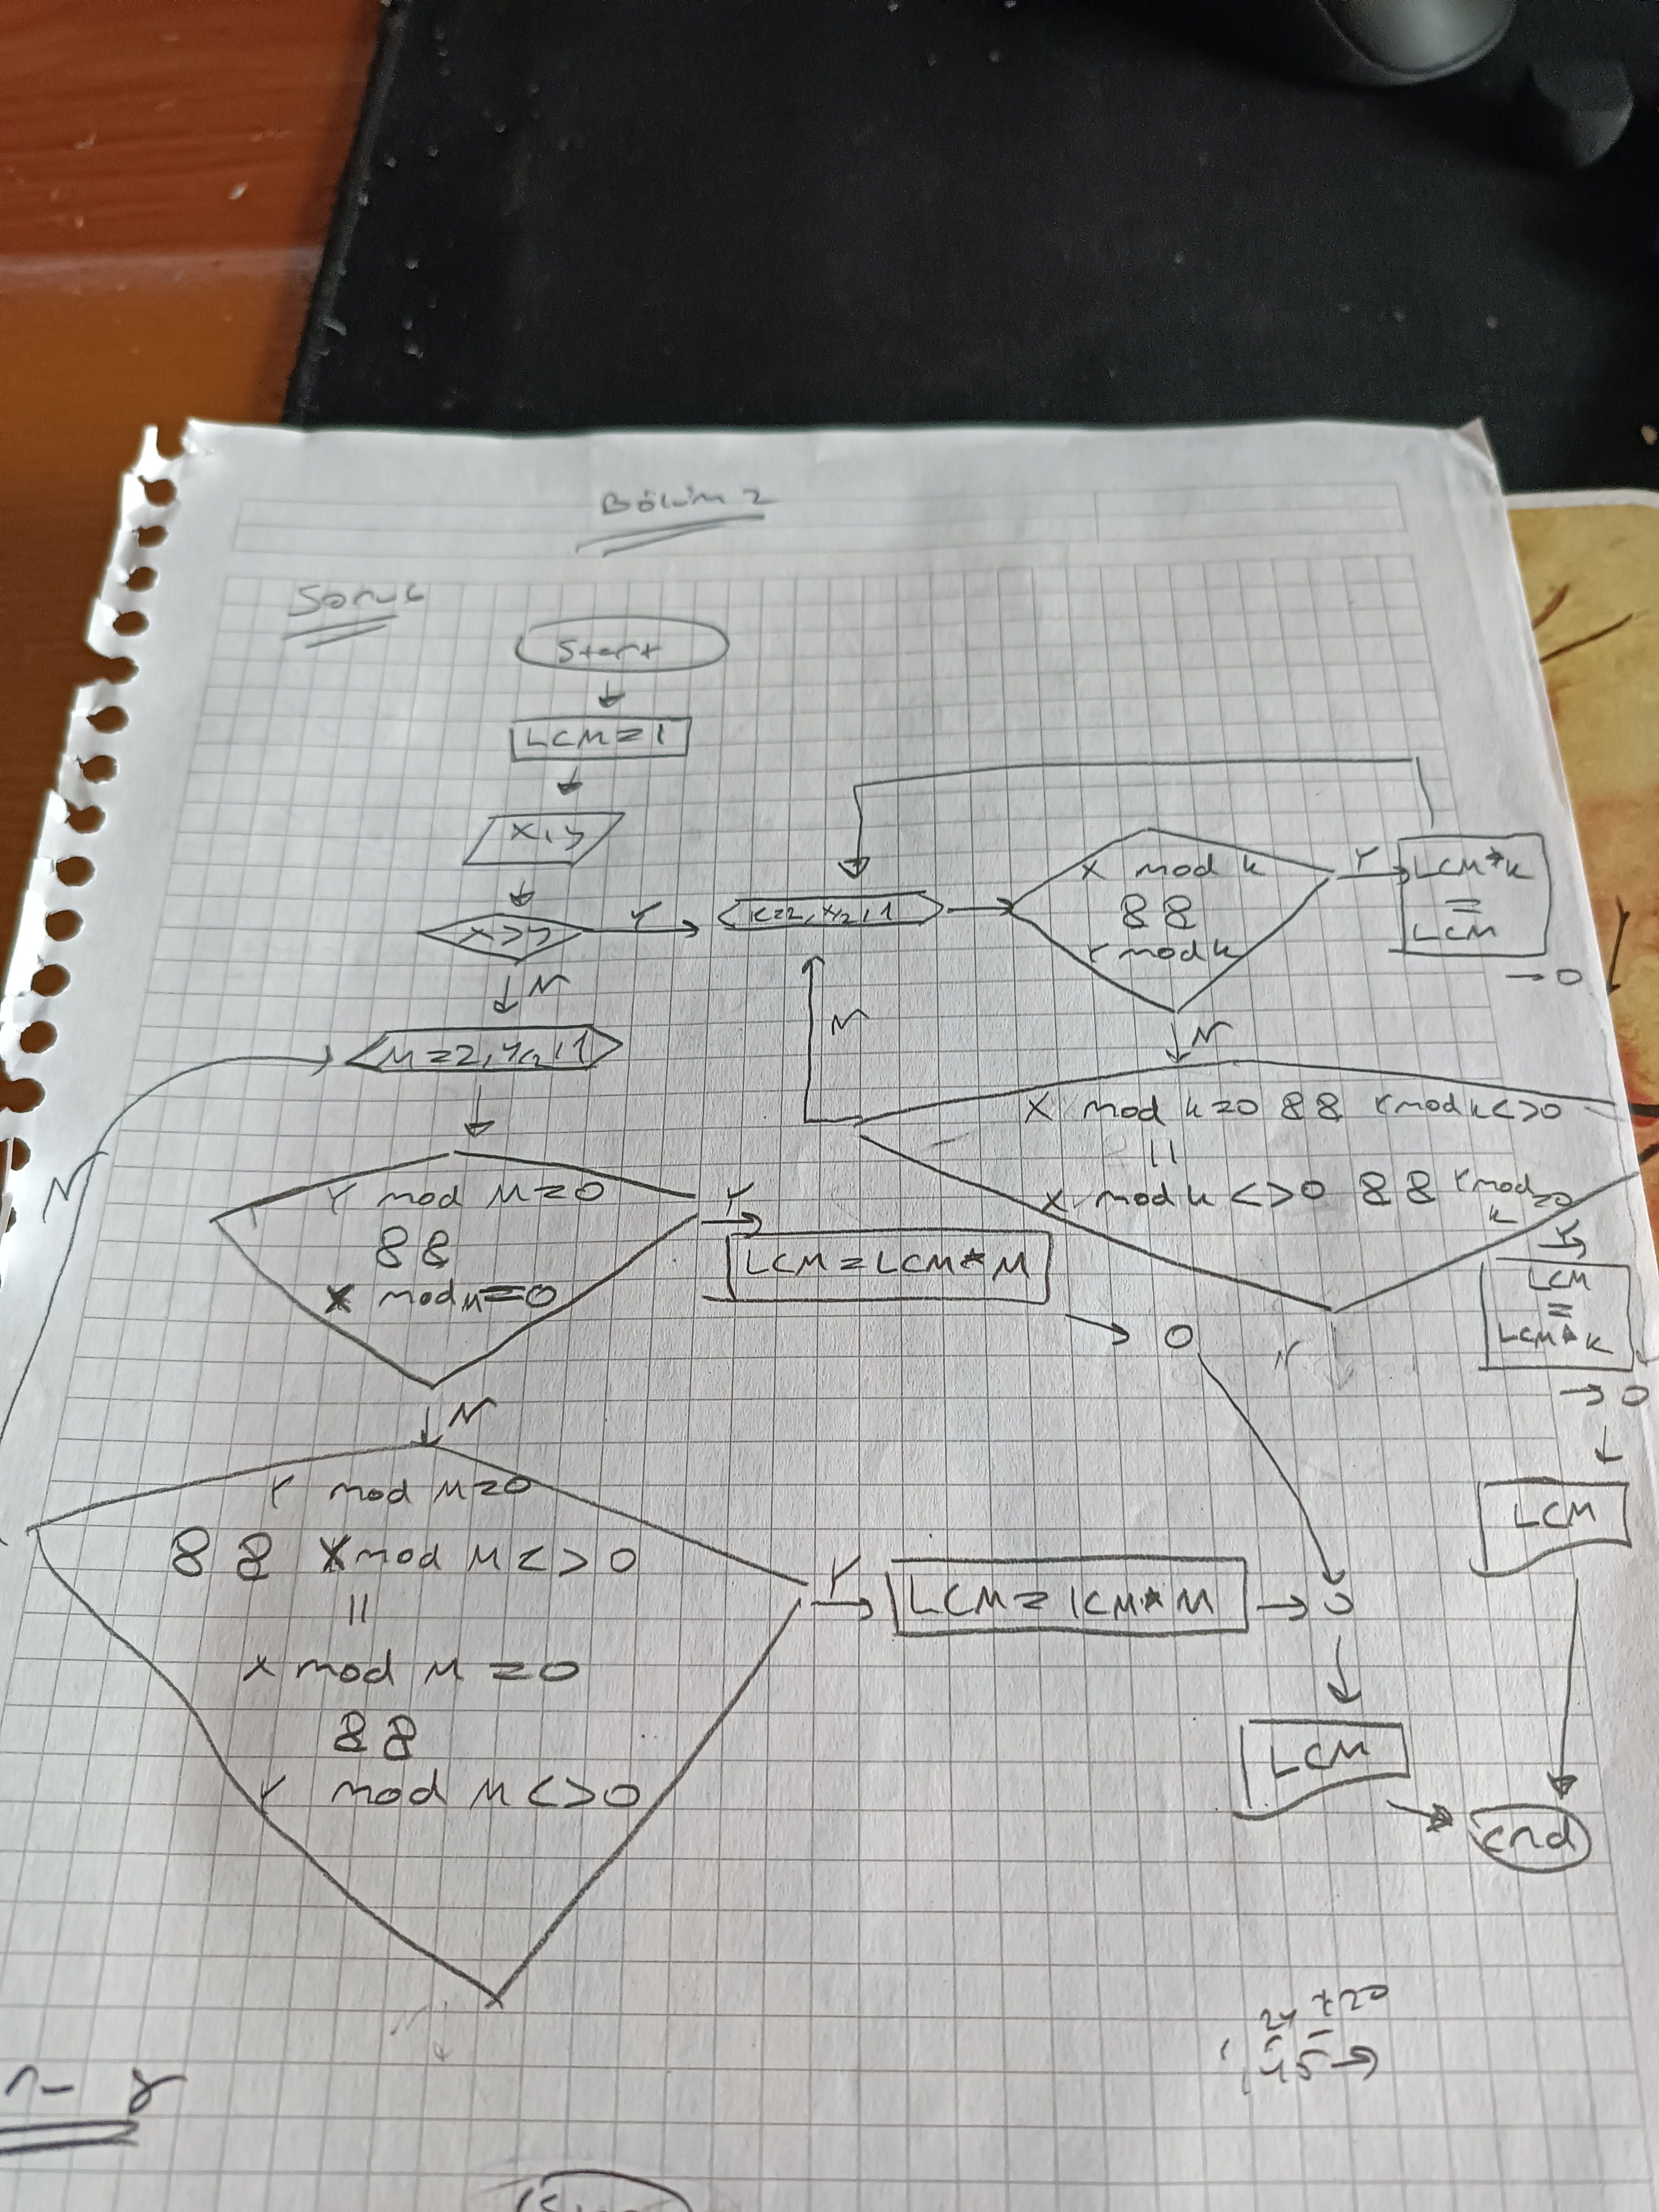 Bölüm 2
Soru 6
Start
LCM = 1
X, y
X > y
Y
k=2, X/2, 1
X mod k
&&
Y mod k
Y
LCM*k
=
LCM
→ 0
N
N
N
M=2, Y/2, 1
X mod k=0 && Y mod k<>0
||
X mod k <>0 && Y mod k =0
Y
LCM
=
LCM*k
→ 0
N
LCM
N
Y mod M=0
&&
X mod M=0
Y
LCM = LCM * M
→ 0
N
Y mod M=0
&& X mod M <> 0
||
X mod M = 0
&&
Y mod M <> 0
Y
LCM = LCM * M
→ 0
LCM
end